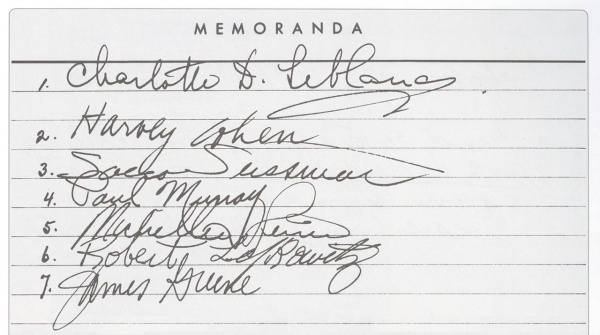 MEMORANDA
1. Charlotte D. Leblanc
2. Harvey Cohen
3. Sussman
4. Paul Murray
5. Michelle
6. Robert Lefkowitz
7. James Greene